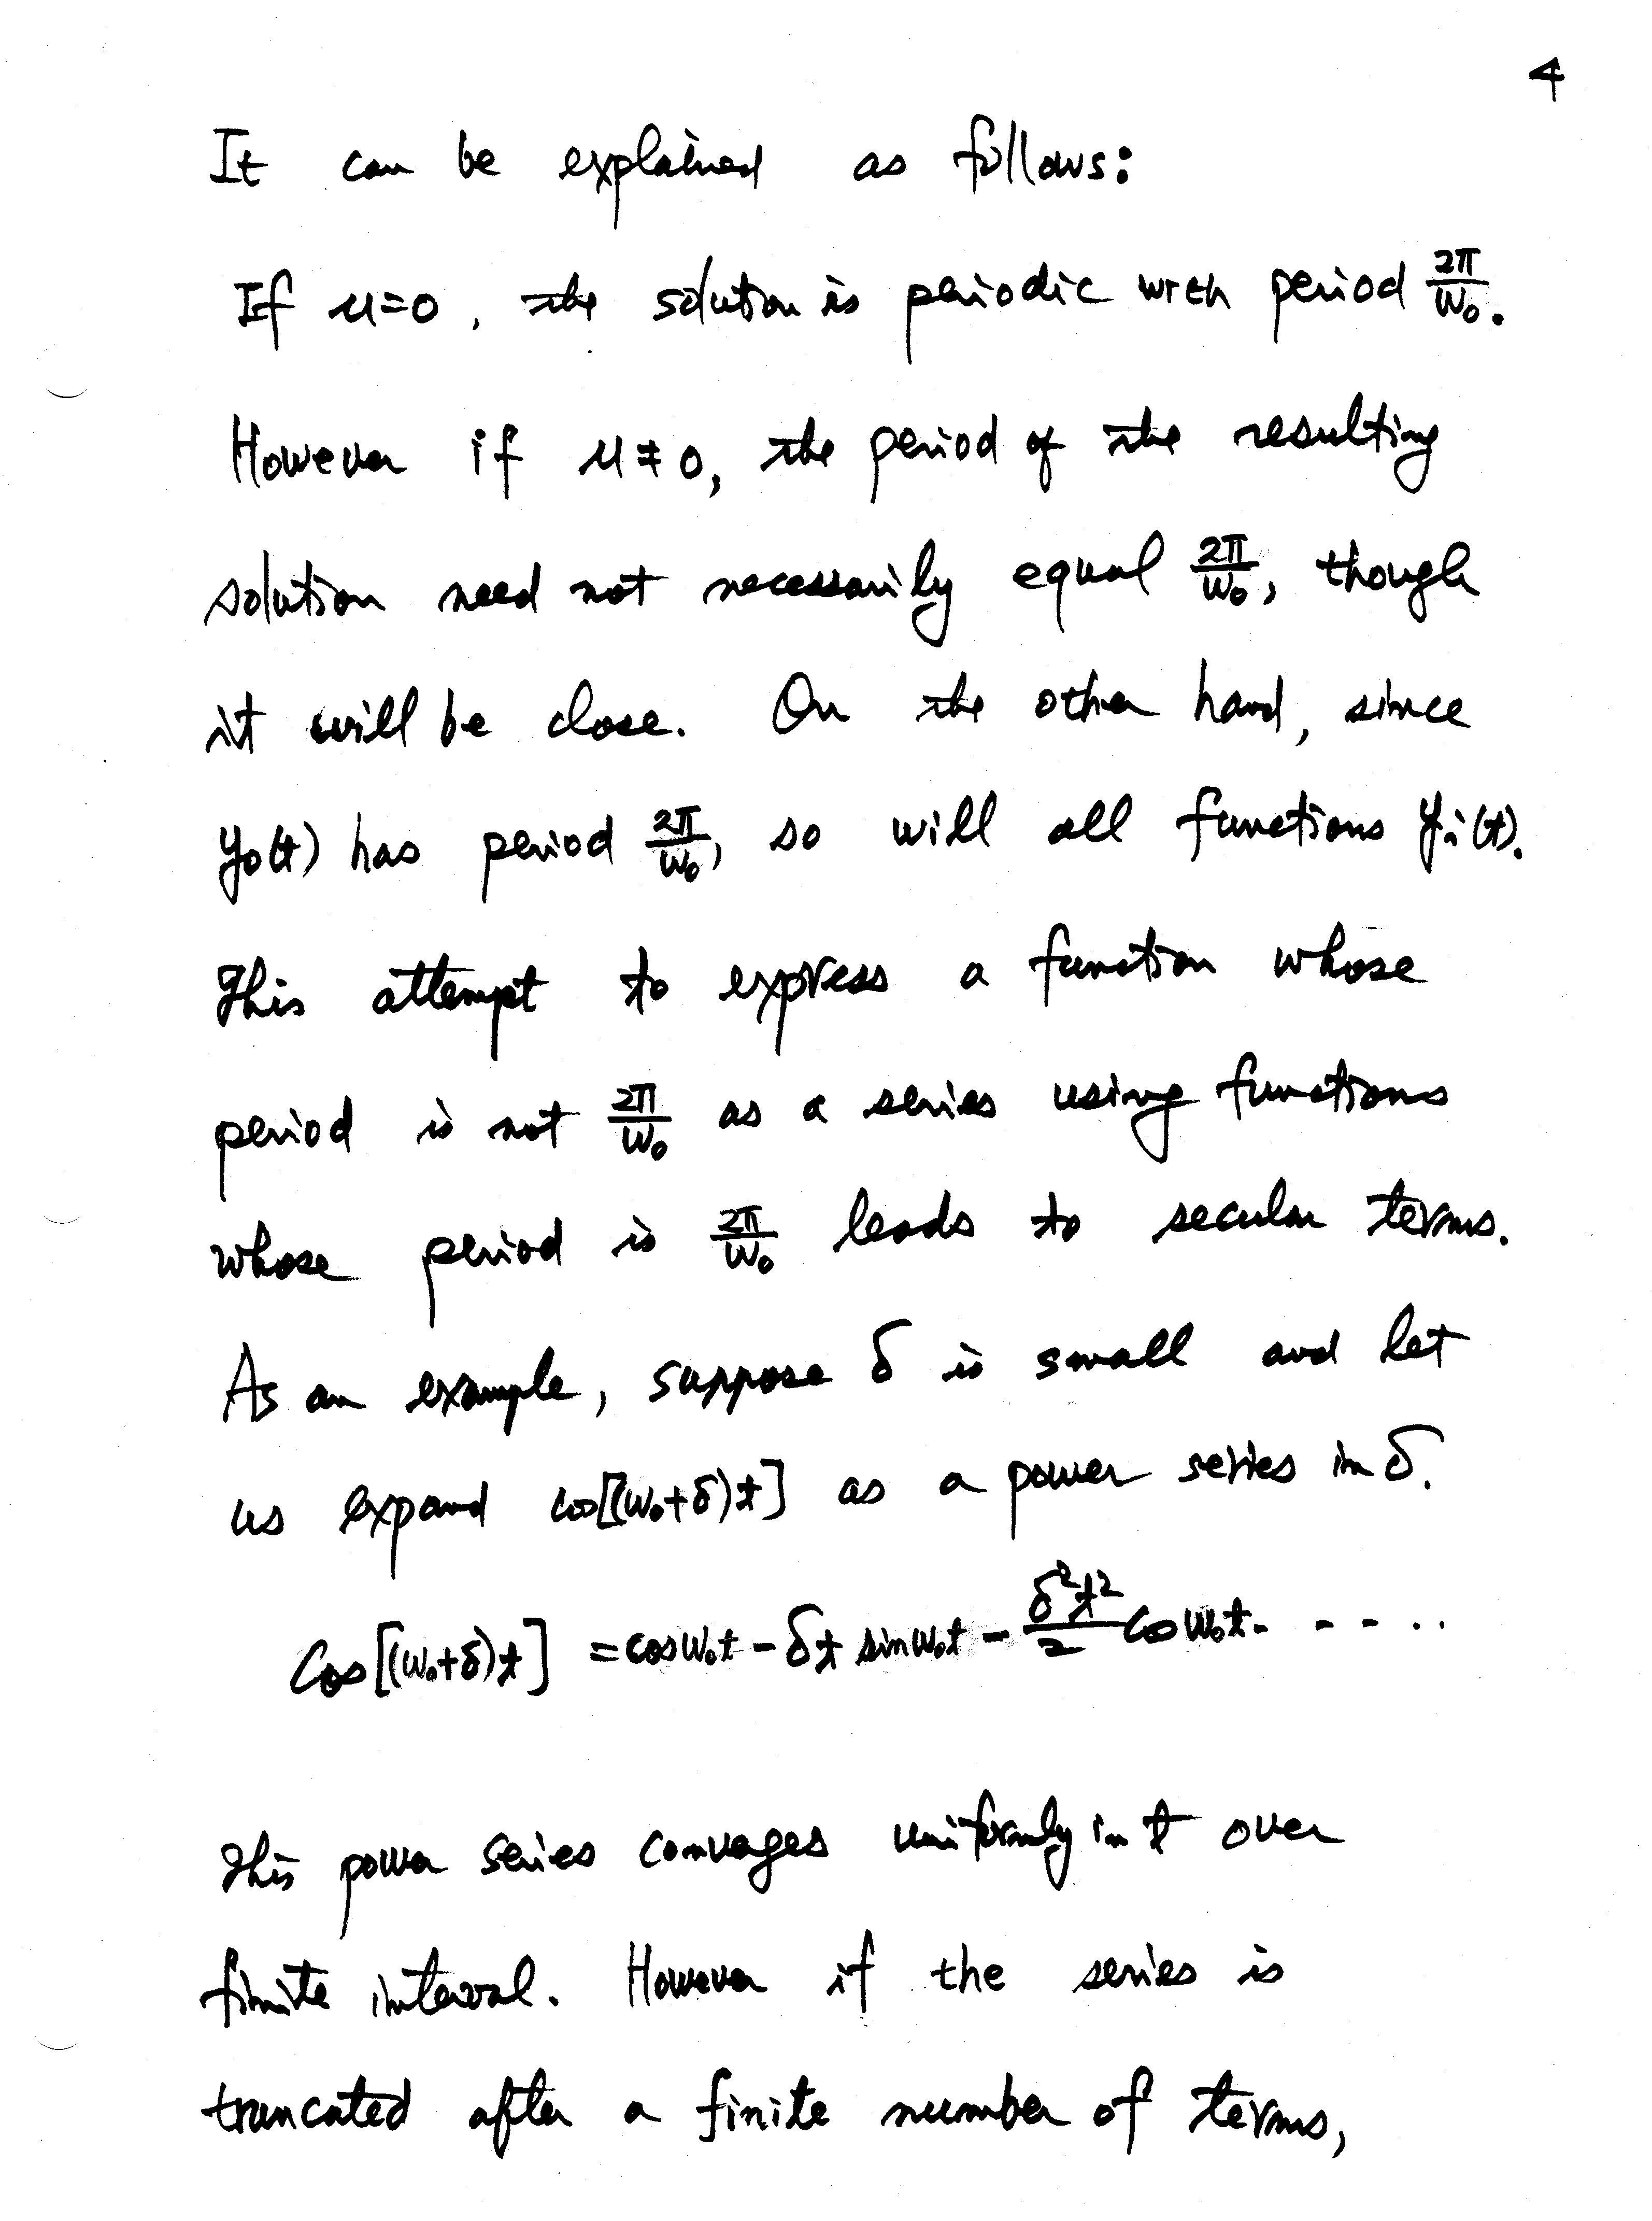 4
It can be explained as follows:
If μ=0, the solution is periodic with period 2π/ω₀.
However if μ≠0, the period of the resulting
solution need not necessarily equal 2π/ω₀, though
it will be close. On the other hand, since
y₀(t) has period 2π/ω₀, so will all functions yᵢ(t).
This attempt to express a function whose
period is not 2π/ω₀ as a series using functions
whose period is 2π/ω₀ leads to secular terms.
As an example, suppose δ is small and let
us expand cos[(ω₀+δ)t] as a power series in δ.
Cos[(ω₀+δ)t] = cosω₀t - δt sinω₀t - δ²t²/2 cosω₀t - - - - ..
This power series converges uniformly in t over
finite interval. However if the series is
truncated after a finite number of terms,